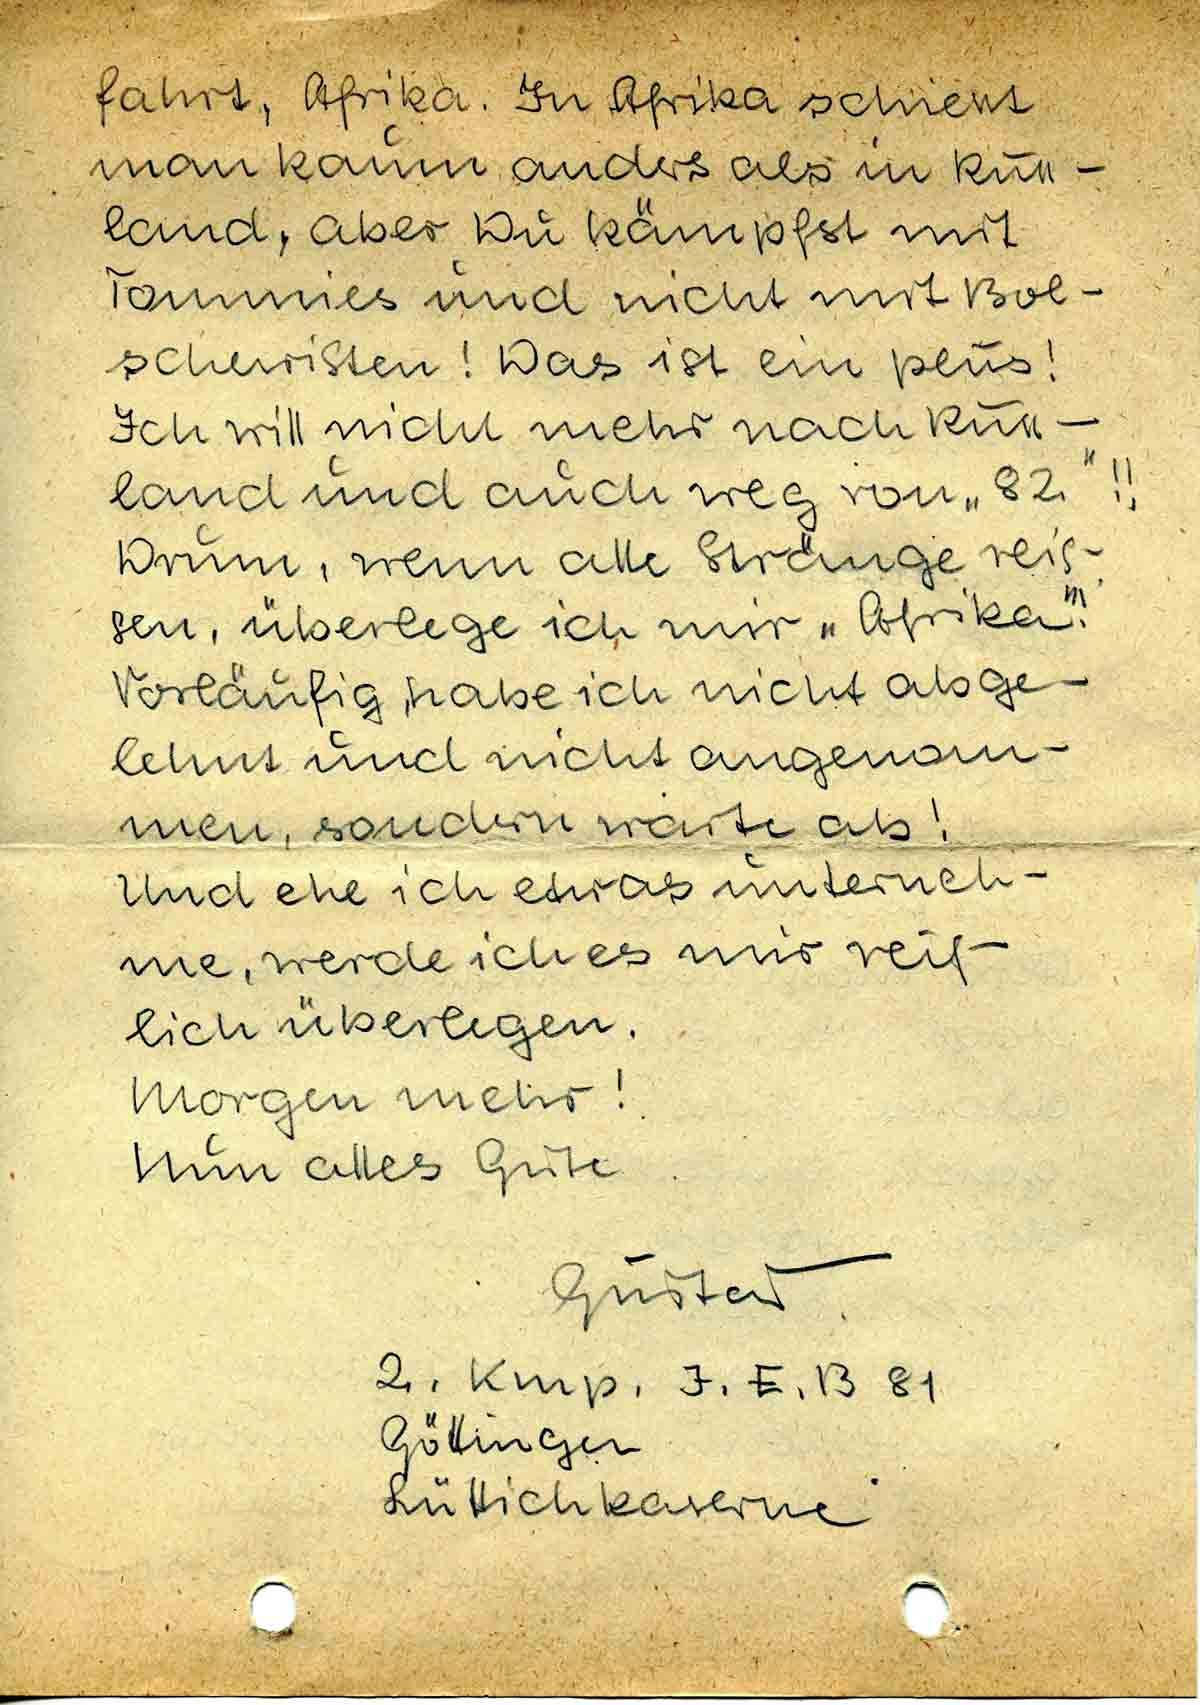 fahrt, Afrika. In Afrika schiesst
man kaum anders als in Russ-
land, aber Du kämpfst mit
Tommies und nicht mit Bol-
schewisten! Das ist ein plus!
Ich will nicht mehr nach Russ-
land und auch weg von „82."!!
Drum, wenn alle Stränge reis-
sen, überlege ich mir „Afrika"!!
Vorläufig habe ich nicht abge-
lehnt und nicht angenom-
men, sondern warte ab!
Und ehe ich etwas unterneh-
me, werde ich es mir reif-
lich überlegen.
Morgen mehr!
Nun alles Gute
Gustav.
2. Kmp. J. E. B 81
Göttingen
Lüttichkaserne